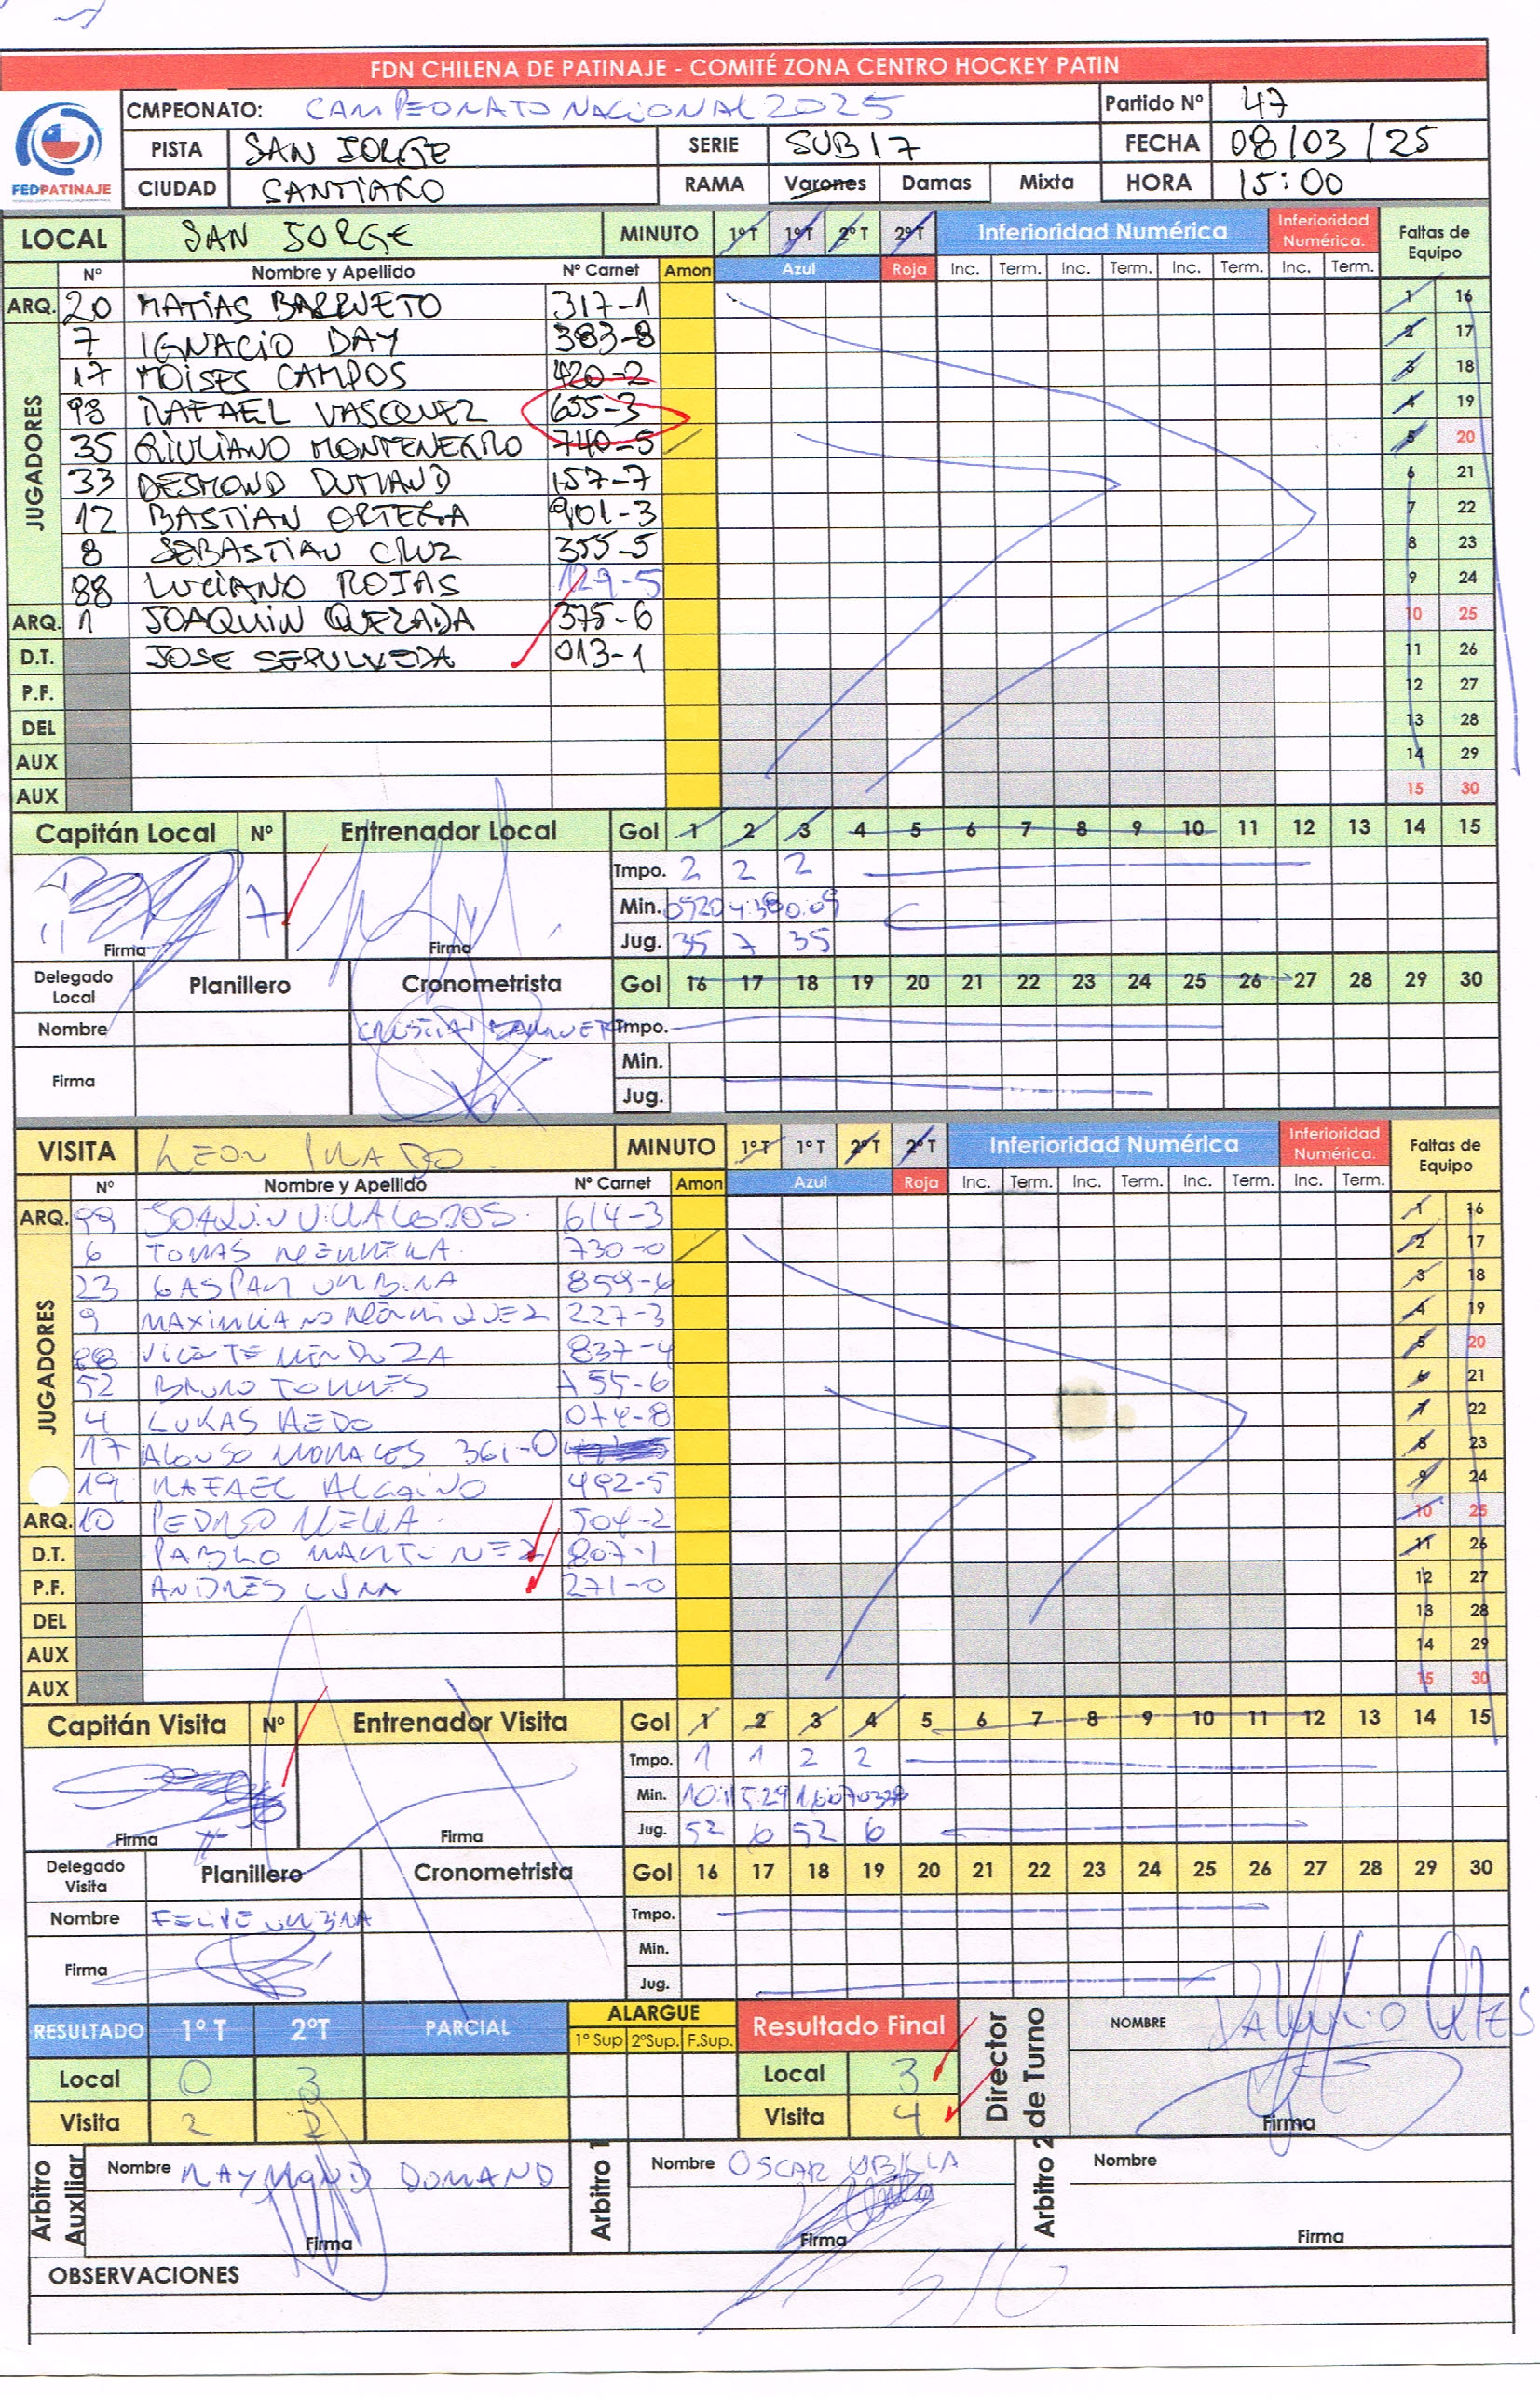 FDN CHILENA DE PATINAJE - COMITÉ ZONA CENTRO HOCKEY PATIN
FEDPATINAJE
CMPEONATO: CAMPEONATO NACIONAL 2025 Partido Nº 47
PISTA SAN JORGE SERIE SUB 17 FECHA 08/03/25
CIUDAD SANTIAGO RAMA Varones Damas Mixta HORA 15:00
LOCAL SAN JORGE MINUTO 1º T 1º T 2º T 2º T Inferioridad Numérica Inferioridad Numérica. Faltas de Equipo
Nº Nombre y Apellido Nº Carnet Amon Azul Roja Inc. Term. Inc. Term. Inc. Term. Inc. Term.
ARQ. 20 MATIAS BARRUETO 317-1 1 16
JUGADORES
7 IGNACIO DAY 383-8 2 17
17 MOISES CAMPOS 420-2 3 18
93 RAFAEL VASQUEZ 655-3 4 19
35 GIULIANO MONTENEGRO 740-5 5 20
33 DESMOND DUMAND 157-7 6 21
12 BASTIAN ORTEGA 901-3 7 22
8 SEBASTIAN CRUZ 355-5 8 23
88 LUCIANO ROJAS 129-5 9 24
ARQ. 1 JOAQUIN QUEZADA 375-6 10 25
D.T. JOSE SEPULVEDA 013-1 11 26
P.F. 12 27
DEL 13 28
AUX 14 29
AUX 15 30
Capitán Local Nº Entrenador Local Gol 1 2 3 4 5 6 7 8 9 10 11 12 13 14 15
Tmpo. 2 2 2
7 Min.
Firma Firma Jug. 35 7 35
Delegado Local Planillero Cronometrista Gol 16 17 18 19 20 21 22 23 24 25 26 27 28 29 30
Nombre CRISTIAN BARRUETO Tmpo.
Min.
Firma Jug.
VISITA LEON PRADO MINUTO 1º T 1º T 2º T 2º T Inferioridad Numérica Inferioridad Numérica. Faltas de Equipo
Nº Nombre y Apellido Nº Carnet Amon Azul Roja Inc. Term. Inc. Term. Inc. Term. Inc. Term.
ARQ. 99 JOAQUIN VILLALOBOS 614-3 1 16
JUGADORES
6 TOMAS 730-0 2 17
23 GASPAR URBINA 859-6 3 18
9 227-3 4 19
88 VICENTE MENDOZA 837-4 5 20
52 BRUNO TORRES 155-6 6 21
4 LUKAS AEDO 074-8 7 22
17 ALONSO MORALES 361-0 8 23
19 RAFAEL 492-5 9 24
ARQ. 10 PEDRO 504-2 10 25
D.T. PABLO MARTINEZ 807-1 11 26
P.F. ANDRES LUNA 271-0 12 27
DEL 13 28
AUX 14 29
AUX 15 30
Capitán Visita Nº Entrenador Visita Gol 1 2 3 4 5 6 7 8 9 10 11 12 13 14 15
Tmpo. 1 1 2 2
Min.
Firma Firma Jug. 52 6 52 6
Delegado Visita Planillero Cronometrista Gol 16 17 18 19 20 21 22 23 24 25 26 27 28 29 30
Nombre FELIPE URBINA Tmpo.
Min.
Firma Jug.
RESULTADO 1º T 2ºT PARCIAL ALARGUE 1º Sup 2ºSup. F.Sup. Resultado Final Director de Turno NOMBRE
Local 0 3 Local 3
Visita 2 2 Visita 4 Firma
Arbitro Auxliar Nombre RAYMOND DUMAND Arbitro 1 Nombre OSCAR UBILLA Arbitro 2 Nombre
Firma Firma Firma
OBSERVACIONES
S/O